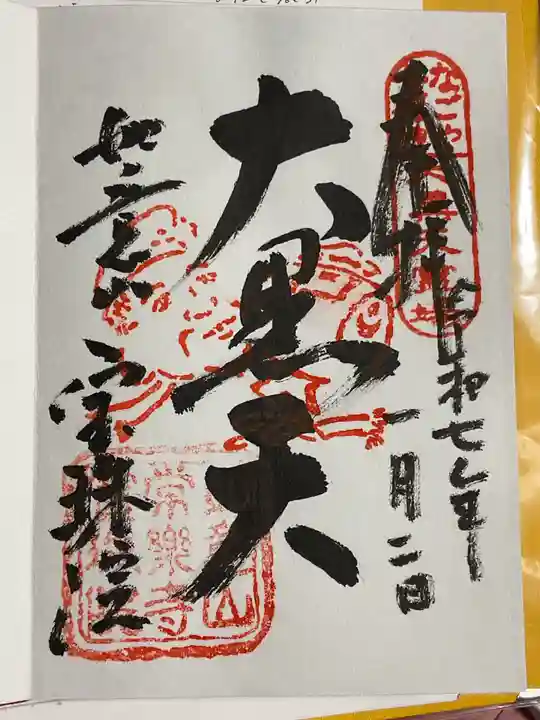 奉拝
令和七年
一月二日
大黒天
如意山
宝珠院
常樂寺